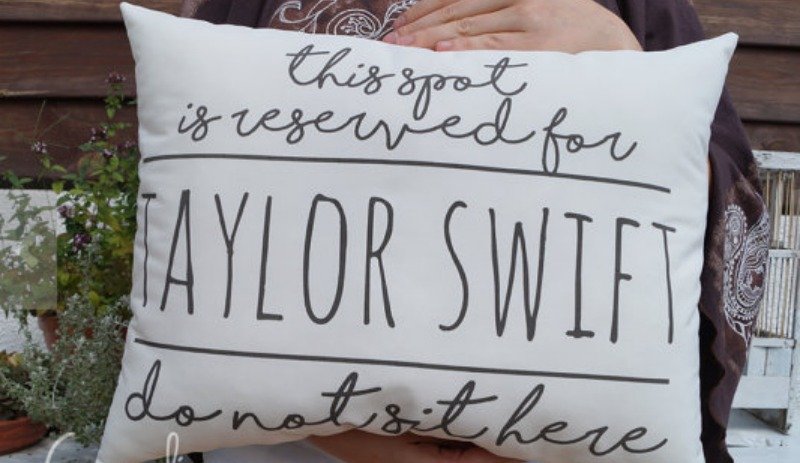 this spot
is reserved for
TAYLOR SWIFT
do not sit here